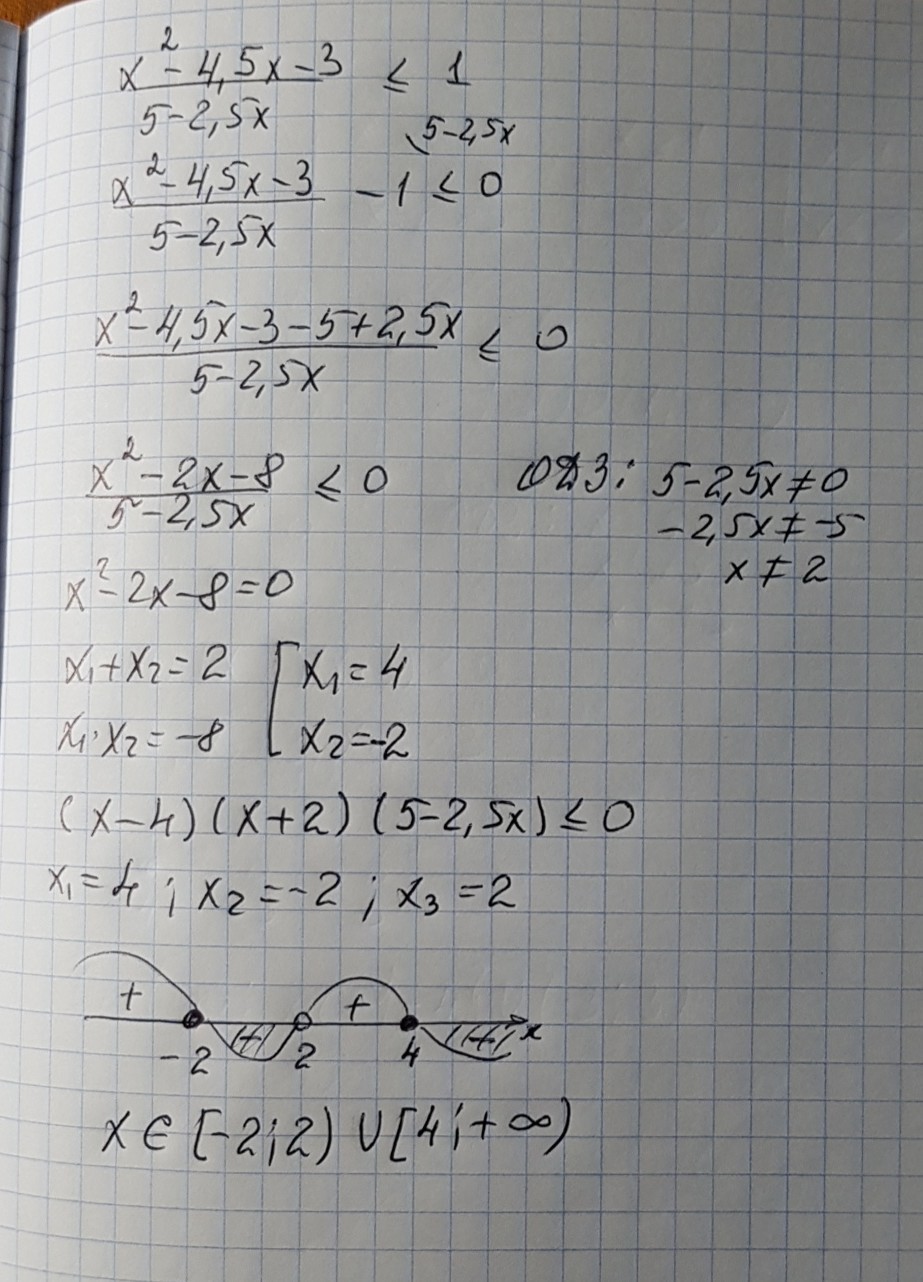 x² - 4,5x - 3 / 5 - 2,5x ≤ 1
x² - 4,5x - 3 / 5 - 2,5x - 1 \5 - 2,5x ≤ 0
x² - 4,5x - 3 - 5 + 2,5x / 5 - 2,5x ≤ 0
x² - 2x - 8 / 5 - 2,5x ≤ 0
ОДЗ: 5 - 2,5x ≠ 0
-2,5x ≠ -5
x ≠ 2
x² - 2x - 8 = 0
x₁ + x₂ = 2 [ x₁ = 4
x₁ · x₂ = -8 [ x₂ = -2
(x - 4)(x + 2)(5 - 2,5x) ≤ 0
x₁ = 4 ; x₂ = -2 ; x₃ = 2
+ - + - x
-2 2 4
x ∈ [-2; 2) ∪ [4; +∞)